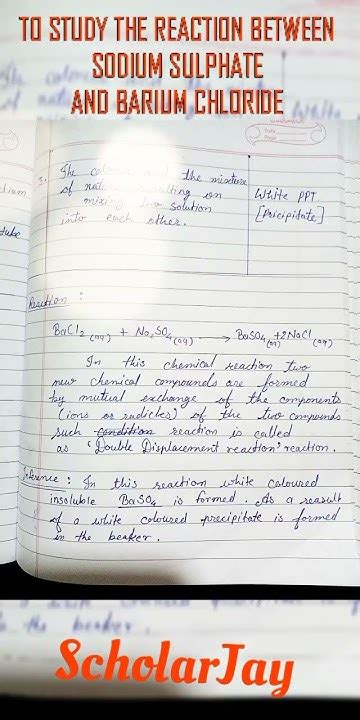 TO STUDY THE REACTION BETWEEN
SODIUM SULPHATE
AND BARIUM CHLORIDE
3. The colour and the mixture
of nature resulting on
mixing two solution
into each other.
White PPT
[Pricipitate]
Reaction :
BaCl2 (aq) + Na2SO4 (aq) → BaSO4 + 2NaCl (aq)
In this chemical reaction two
new chemical compounds are formed
by mutual exchange of the components
(ions or radicles) of the two compounds
such condition reaction is called
as 'Double Displacement reaction' reaction.
Inference : In this reaction white coloured
insoluble BaSO4 is formed. As a reasult
of a white coloured precipitate is formed
in the beaker.
the beaker.
ScholarJay